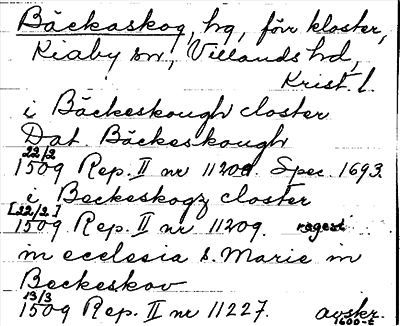 Bäckaskog, hg, förr kloster,
Kiaby sn, Villands hd,
Krist. l.
i Bäckeskough closter
Dat. Bäckeskough
22/2
1509 Rep. II nr 11208. Spec. 1693.
i Beckeskogz closter
[22/2]
1509 Rep. II nr 11209. regest
in ecclesia s. Marie in
Beckeskov
13/3
1509 Rep. II nr 11227. avskr.
1600-t